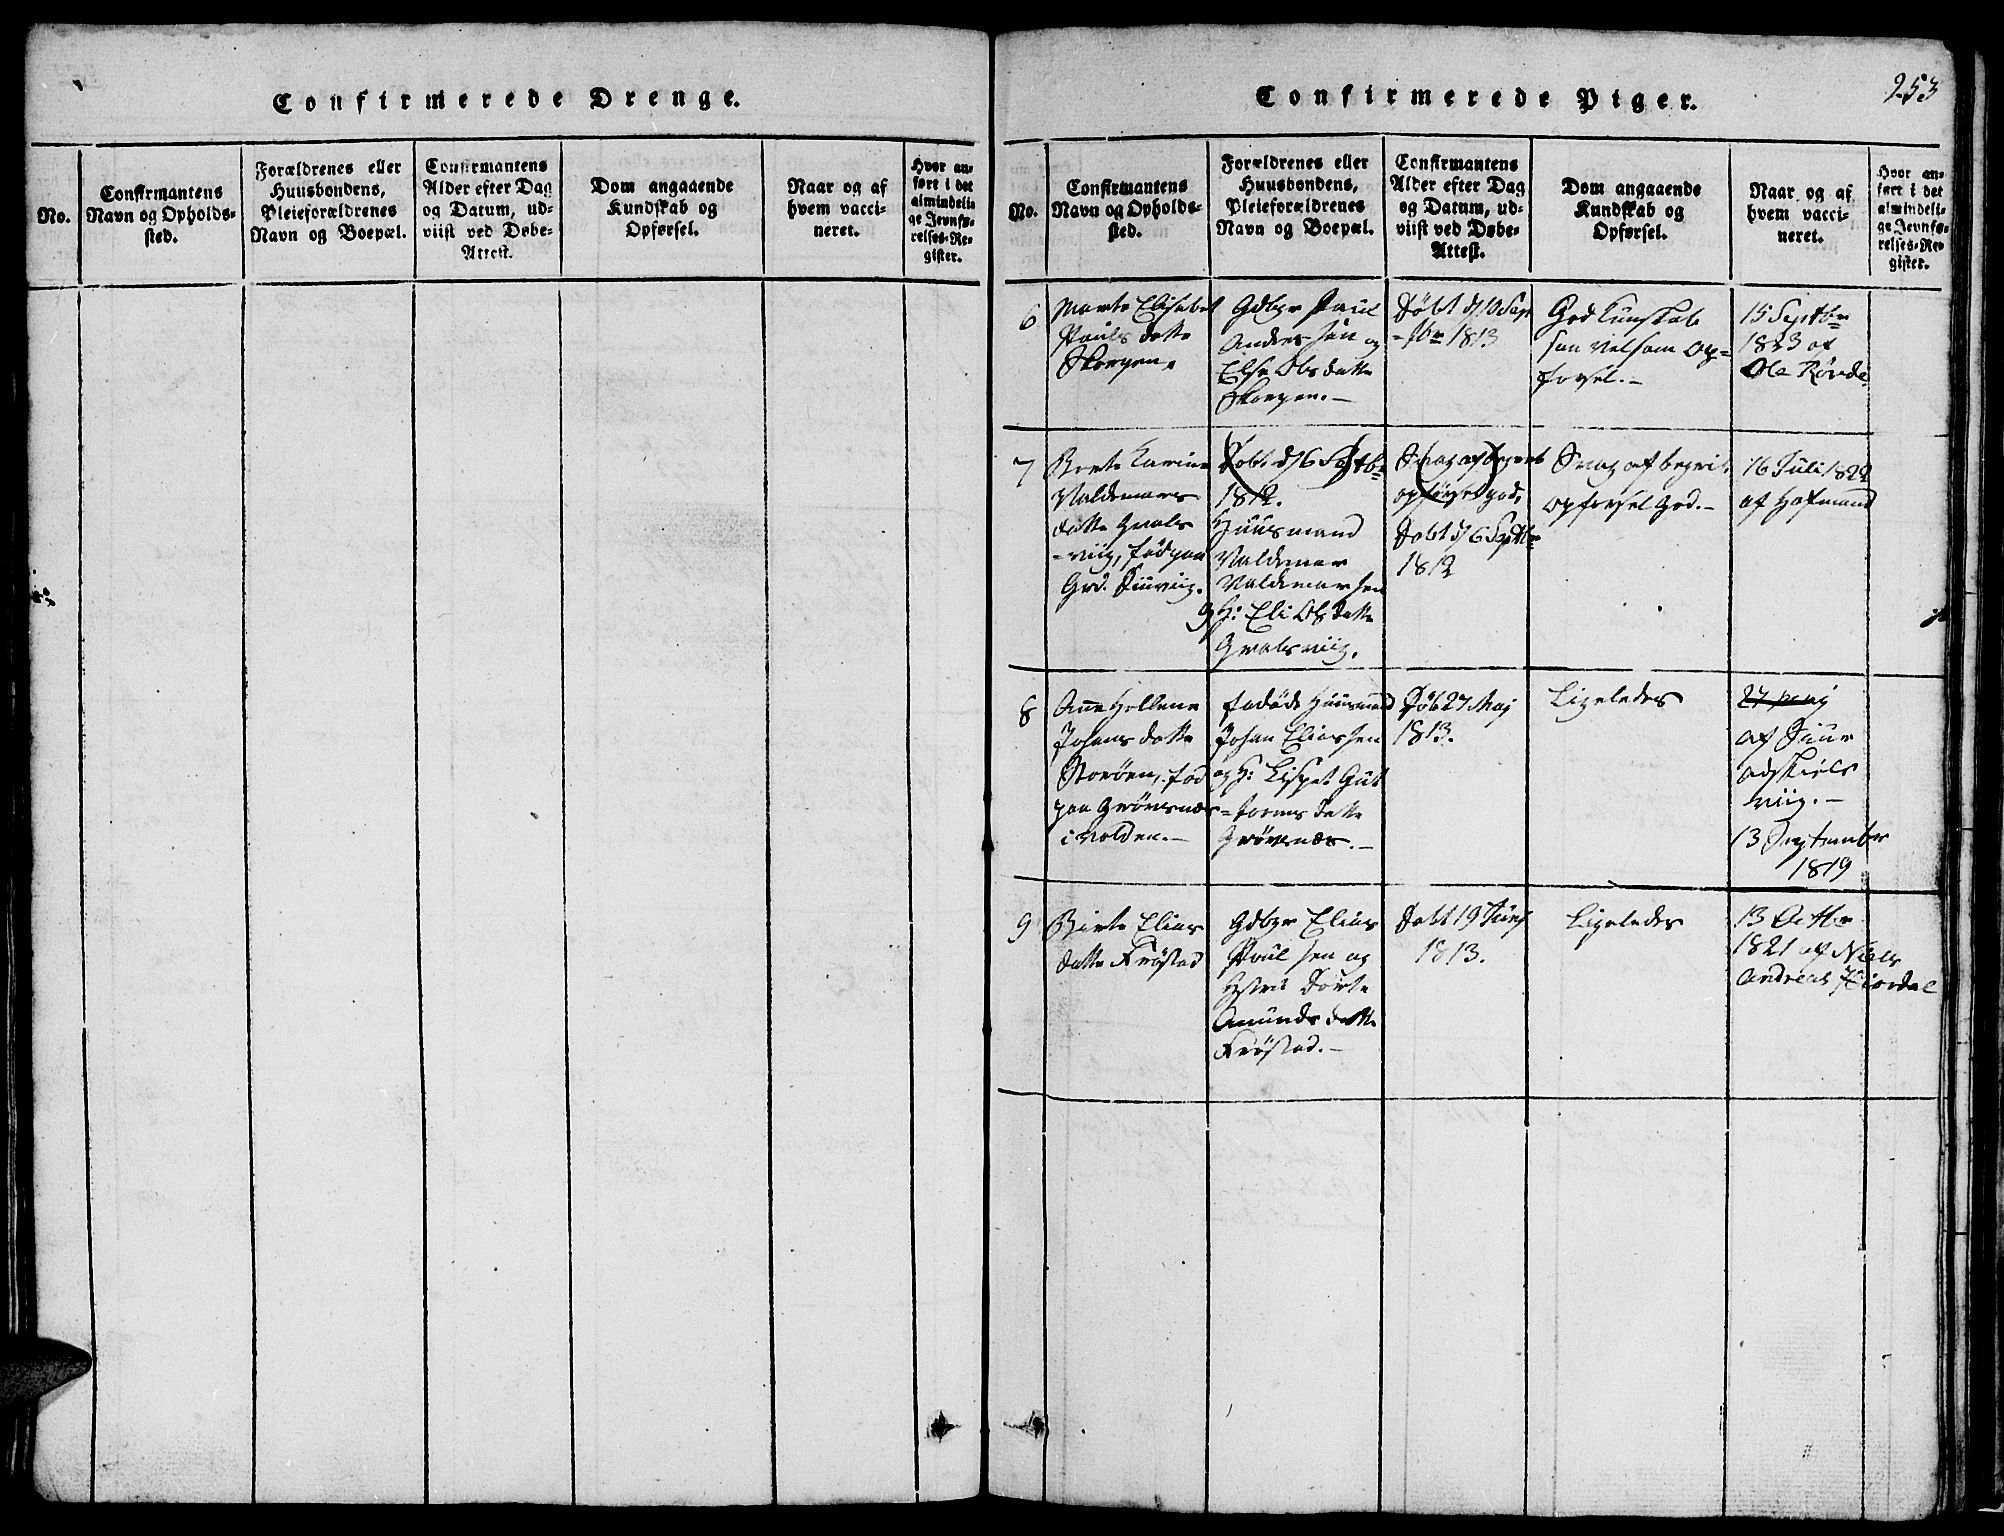 Confirmerede Drenge.
No.
Confirmantens
Navn og Opholds-
sted.
Forældrenes eller
Huusbondens,
Pleieforældrenes
Navn og Boepæl.
Confirmantens
Alder efter Dag
og Datum, ud-
viist ved Døbe-
Attest.
Dom angaaende
Kundskab og
Opførsel.
Naar og af
hvem vacci-
neret.
Hvor an-
ført i det
almindeli-
ge Jevnfø-
relses-Re-
gister.
Confirmerede Piger.
253
No.
Confirmantens
Navn og Opholds-
sted.
Forældrenes eller
Huusbondens,
Pleieforældrenes
Navn og Boepæl.
Confirmantens
Alder efter Dag
og Datum, ud-
viist ved Døbe-
Attest.
Dom angaaende
Kundskab og
Opførsel.
Naar og af
hvem vacci-
neret.
Hvor an-
ført i det
almindeli-
ge Jevnfø-
relses-Re-
gister.
6
Marte Elisabet
Pauls datte
Skorgen.
Gdbgr Paul
Anders sen og
Else Ols datte
Skorgen.-
Døbt d/10 Sept
-br 1813
God kunskab
saa velsom Op-
forsel.-
15 Septbr
1823 af
Ole Røvde
7
Berte Karine
Valdemars
datte Gvals
-viig, fød paa
Grd.
Dobt d/6 Septbr
1812.
Huusmand
Valdemar
Valdemarsen
og H: Eli Ols datte
Gvalsviig.
Svag af begreb
opførsel god,
Dobt d/6 Septbr
1812
Svag af begrib.
opforsel God.-
16 Juli 1822
af Hofmand
8
Ane Hellene
Johans datte
Storøen, fød
paa Grøvsnæs
i Volden.-
Fadøde Huusmand
Johan Eliassen
og H: Lispet Gut
-torms datte
Grøvsnæs.-
Døbt 27 Maj
1813.
Ligeledes
27 Maj
af
viig.-
13 September
1819
9
Birte Elias
datte Frøstad
Gdbgr Elias
Paul sen og
Hstru Dorte
Amunds datte
Frøstad.-
Dobt 19 Junj
1813.
Ligeledes
13 Octbr
1821 af Niels
Andreas